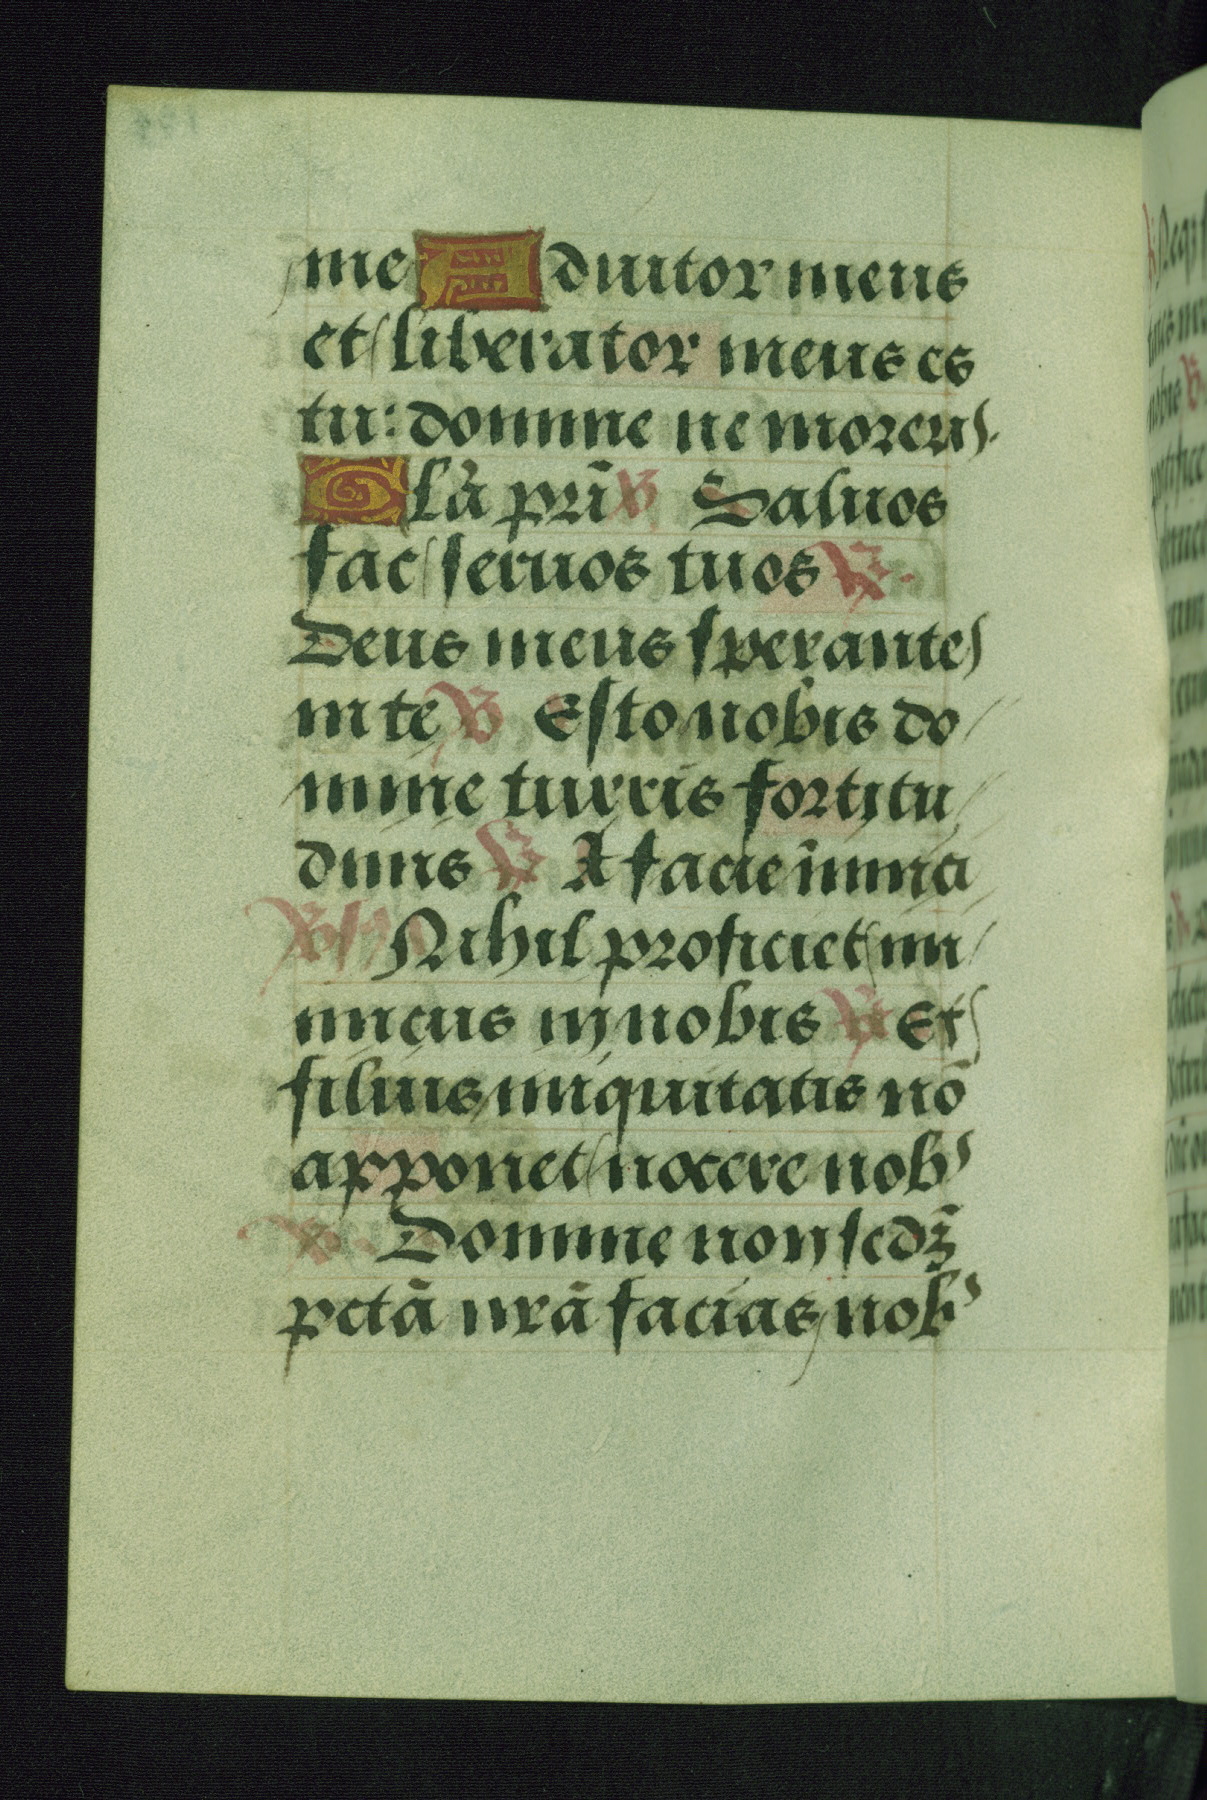 me Adiutor meus
et liberator meus es
tu: domine ne moreris.
Glã pri ℣ Saluos
fac seruos tuos ℟.
Deus meus sperantes
in te ℣ Esto nobis do
mine turris fortitu
dinis ℟ A facie inimici
℣ Nihil proficiet ini
micus in nobis ℟ Et
filius iniquitatis nõ
apponet nocere nob'
℣. Domine non scdʒ̃
pctã nrã facias nob'